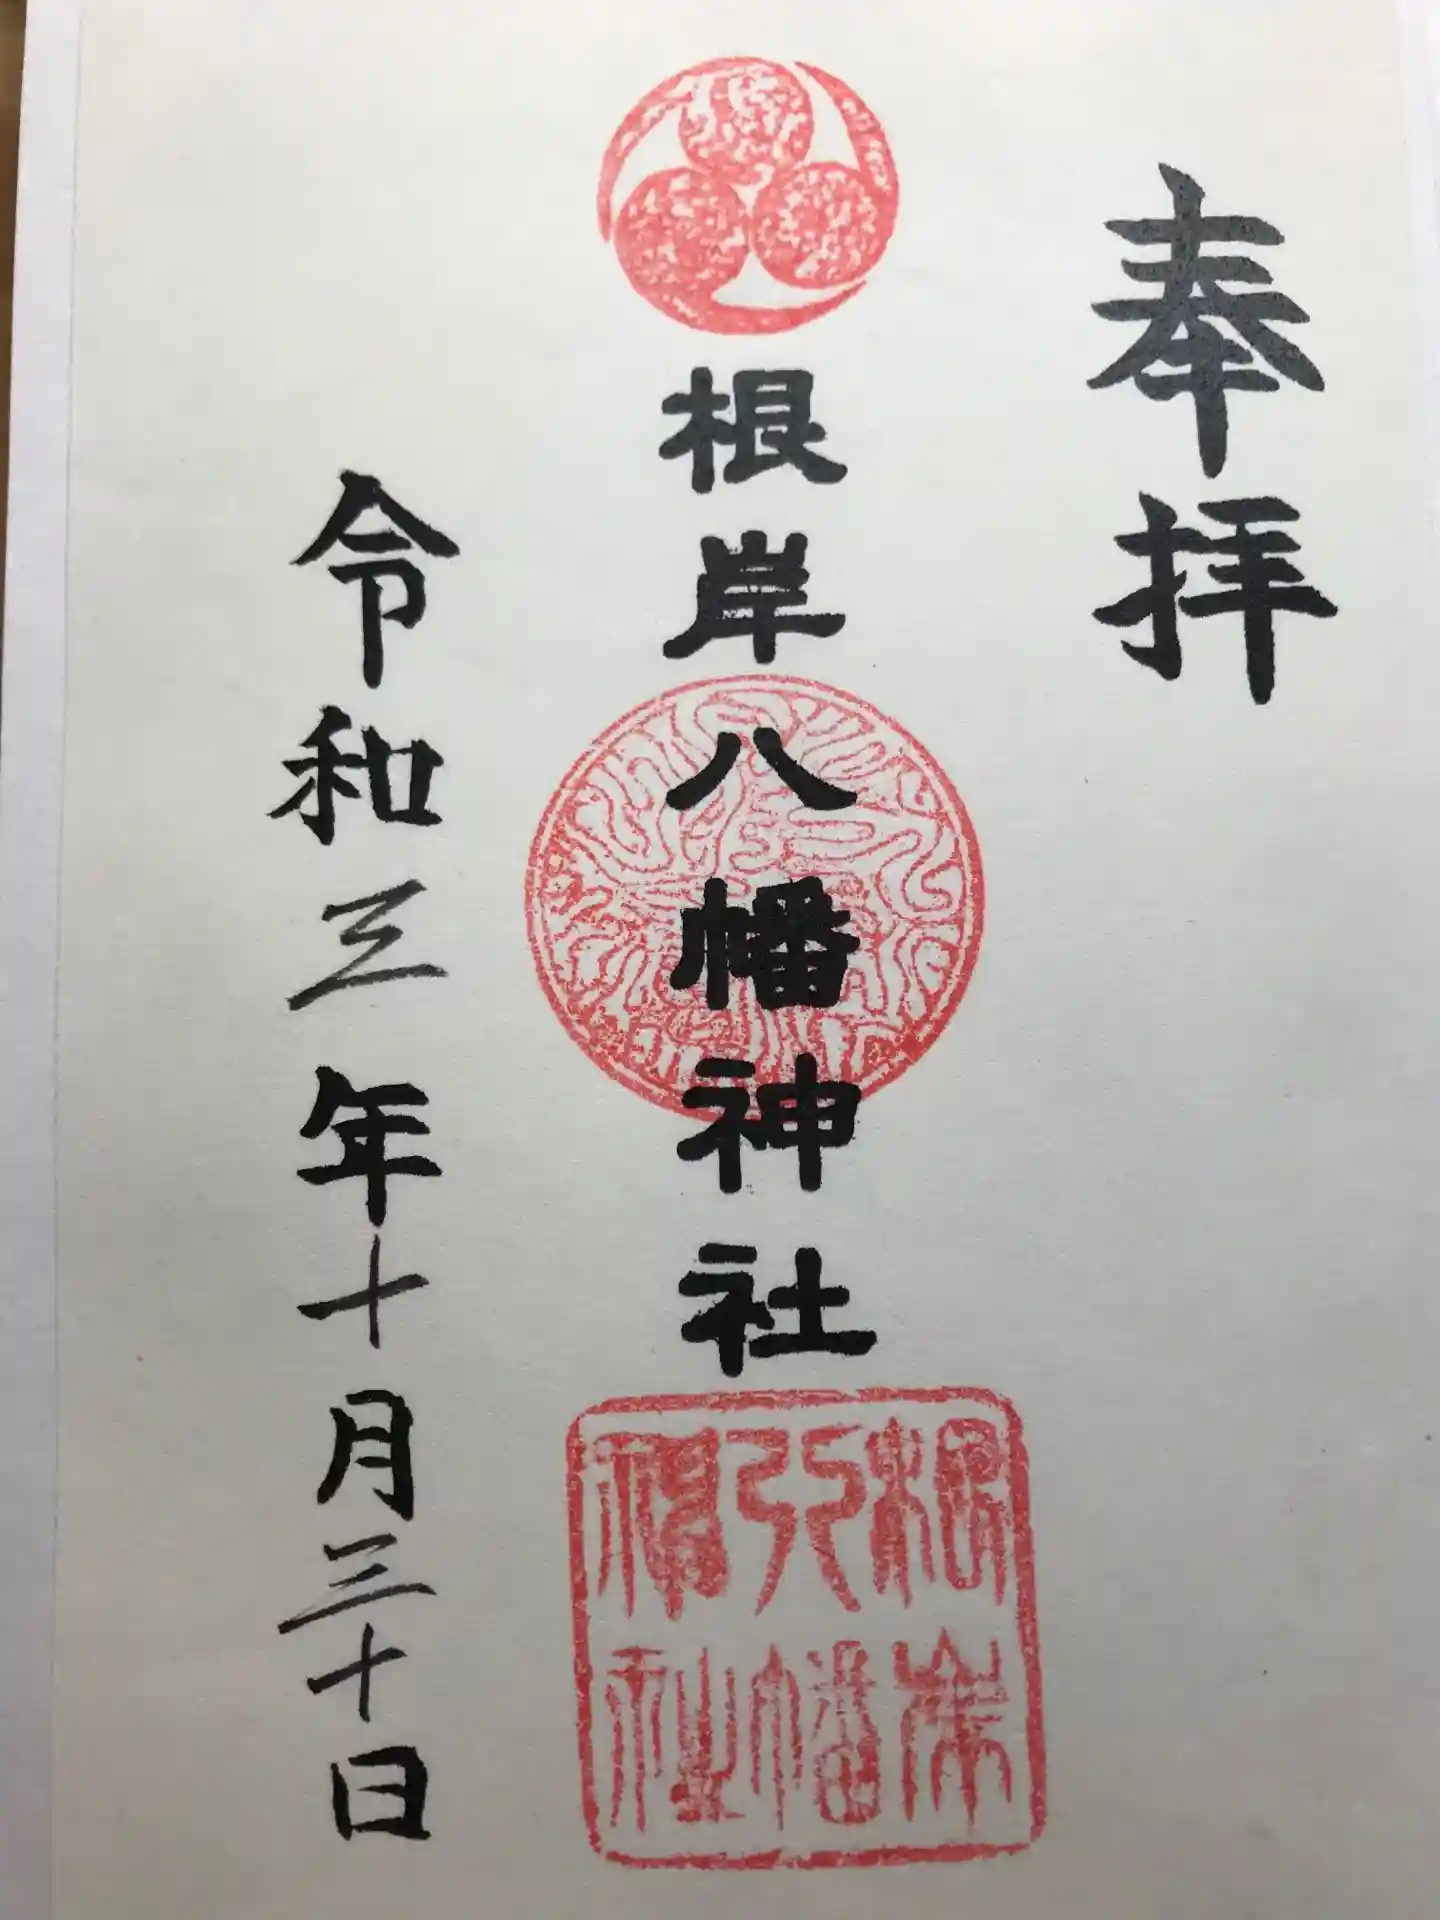 奉拝
根岸八幡神社
根岸八幡神社
令和三年十月三十日